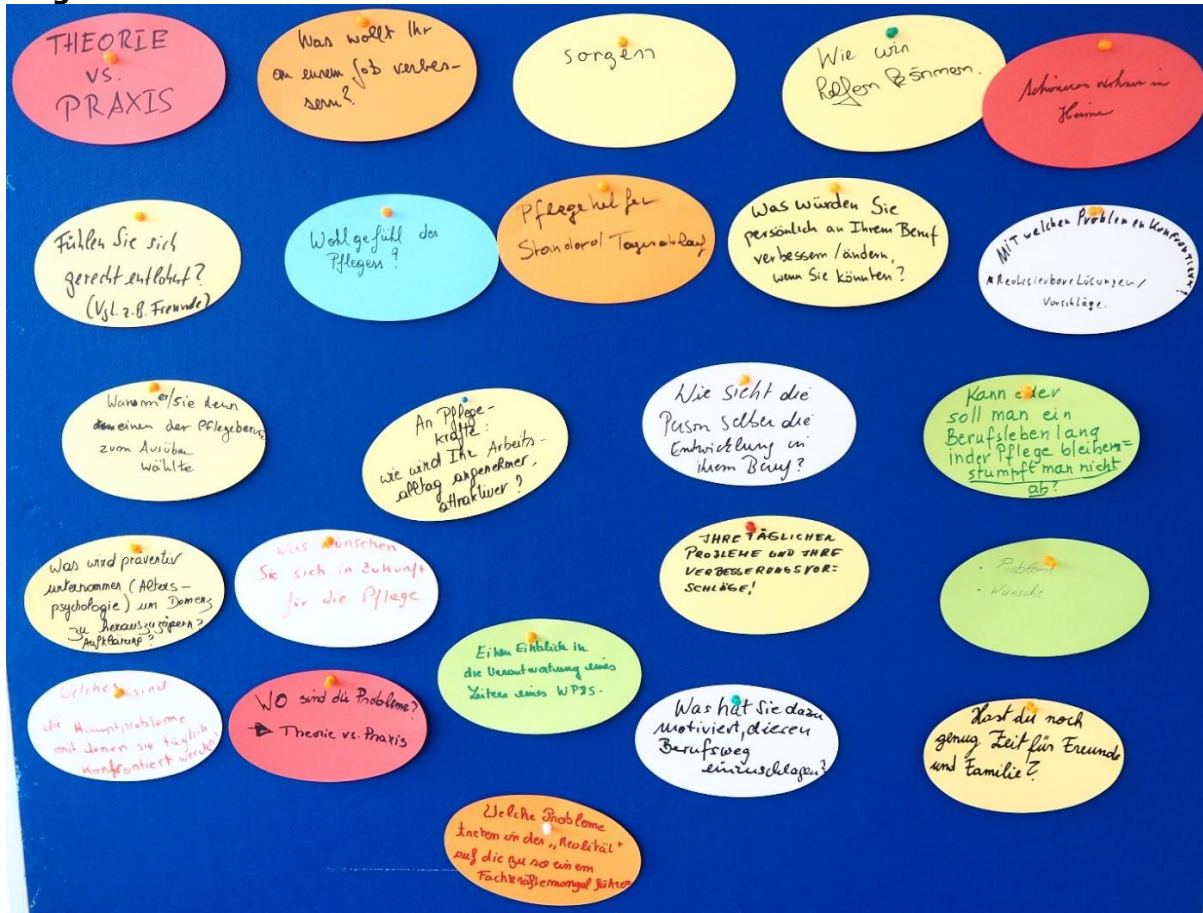 THEORIE
vs.
PRAXIS
Was wollt Ihr
an eurem Job verbes-
sern?
sorgen
Wie wir
helfen können.
Schöneres wohnen im
Heime
Fühlen Sie sich
gerecht entlohnt?
(Vgl. z.B. Freunde)
Wohlgefühl des
Pflegers?
Pflegehelfer
Standard Tagesablauf
Was würden Sie
persönlich an Ihrem Beruf
verbessern/ändern,
wenn Sie könnten?
MiT welchen Problemen Konfrontiert?
Realisierbare Lösungen/
Vorschläge.
Warum er/sie denn
einen der Pflegeberufe
zum Ausüben
wählte
An Pflege-
kräfte:
wie wird Ihr Arbeits-
alltag angenehmer,
attraktiver?
Wie sieht die
Person selber die
Entwicklung in
ihrem Beruf?
Kann oder
soll man ein
Berufsleben lang
in der Pflege bleiben=
stumpft man nicht
ab?
Was wird präventiv
unternommen (Alters-
psychologie) um Demenz
zu herauszuzögern?
Aufklärung?
Was wünschen
Sie sich in Zukunft
für die Pflege
IHRE TÄGLICHEN
PROBLEME UND IHRE
VERBESSERUNGSVOR-
SCHLÄGE!
• Probleme
• Wünsche
Welches sind
die Hauptprobleme
mit denen sie täglich
konfrontiert werden?
WO sind die Probleme?
➔ Theorie vs. Praxis
Einen Einblick in
die Verantwortung eines
Leiters eines WPZS.
Was hat Sie dazu
motiviert, diesen
Berufsweg
einzuschlagen?
Hast du noch
genug Zeit für Freunde
und Familie?
Welche Probleme
treten in der „Realität"
auf die zu so einem
Fachkräftemangel führen